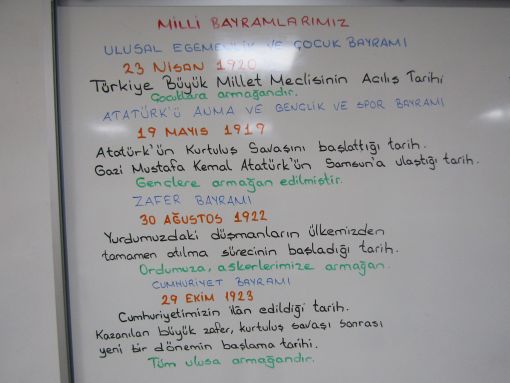 MİLLİ BAYRAMLARIMIZ
ULUSAL EGEMENLİK VE ÇOCUK BAYRAMI
23 NİSAN 1920
Türkiye Büyük Millet Meclisinin Açılış Tarihi
Çocuklara armağandır.
ATATÜRK'Ü ANMA VE GENÇLİK VE SPOR BAYRAMI
19 MAYIS 1919
Atatürk'ün Kurtuluş Savaşını başlattığı tarih.
Gazi Mustafa Kemal Atatürk'ün Samsun'a ulaştığı tarih.
Gençlere armağan edilmiştir.
ZAFER BAYRAMI
30 AĞUSTOS 1922
Yurdumuzdaki düşmanların ülkemizden
tamamen atılma sürecinin başladığı tarih.
Ordumuza, askerlerimize armağan.
CUMHURİYET BAYRAMI
29 EKİM 1923
Cumhuriyetimizin ilân edildiği tarih.
Kazanılan büyük zafer, kurtuluş savaşı sonrası
yeni bir dönemin başlama tarihi.
Tüm ulusa armağandır.